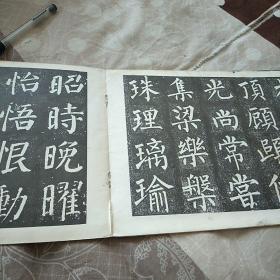 頂顧顯
光尚常當
集梁樂槃
珠理璃瑜
昭時晚曜
怡悟恨動